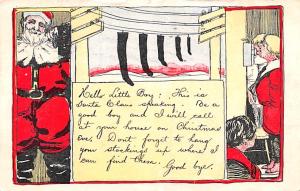 Hello Little Boy: This is
Santa Claus speaking. Be a
good boy and I will call
at your house on Christmas
Eve. Don't forget to hang
your stockings up where I
can find them.
Good bye.